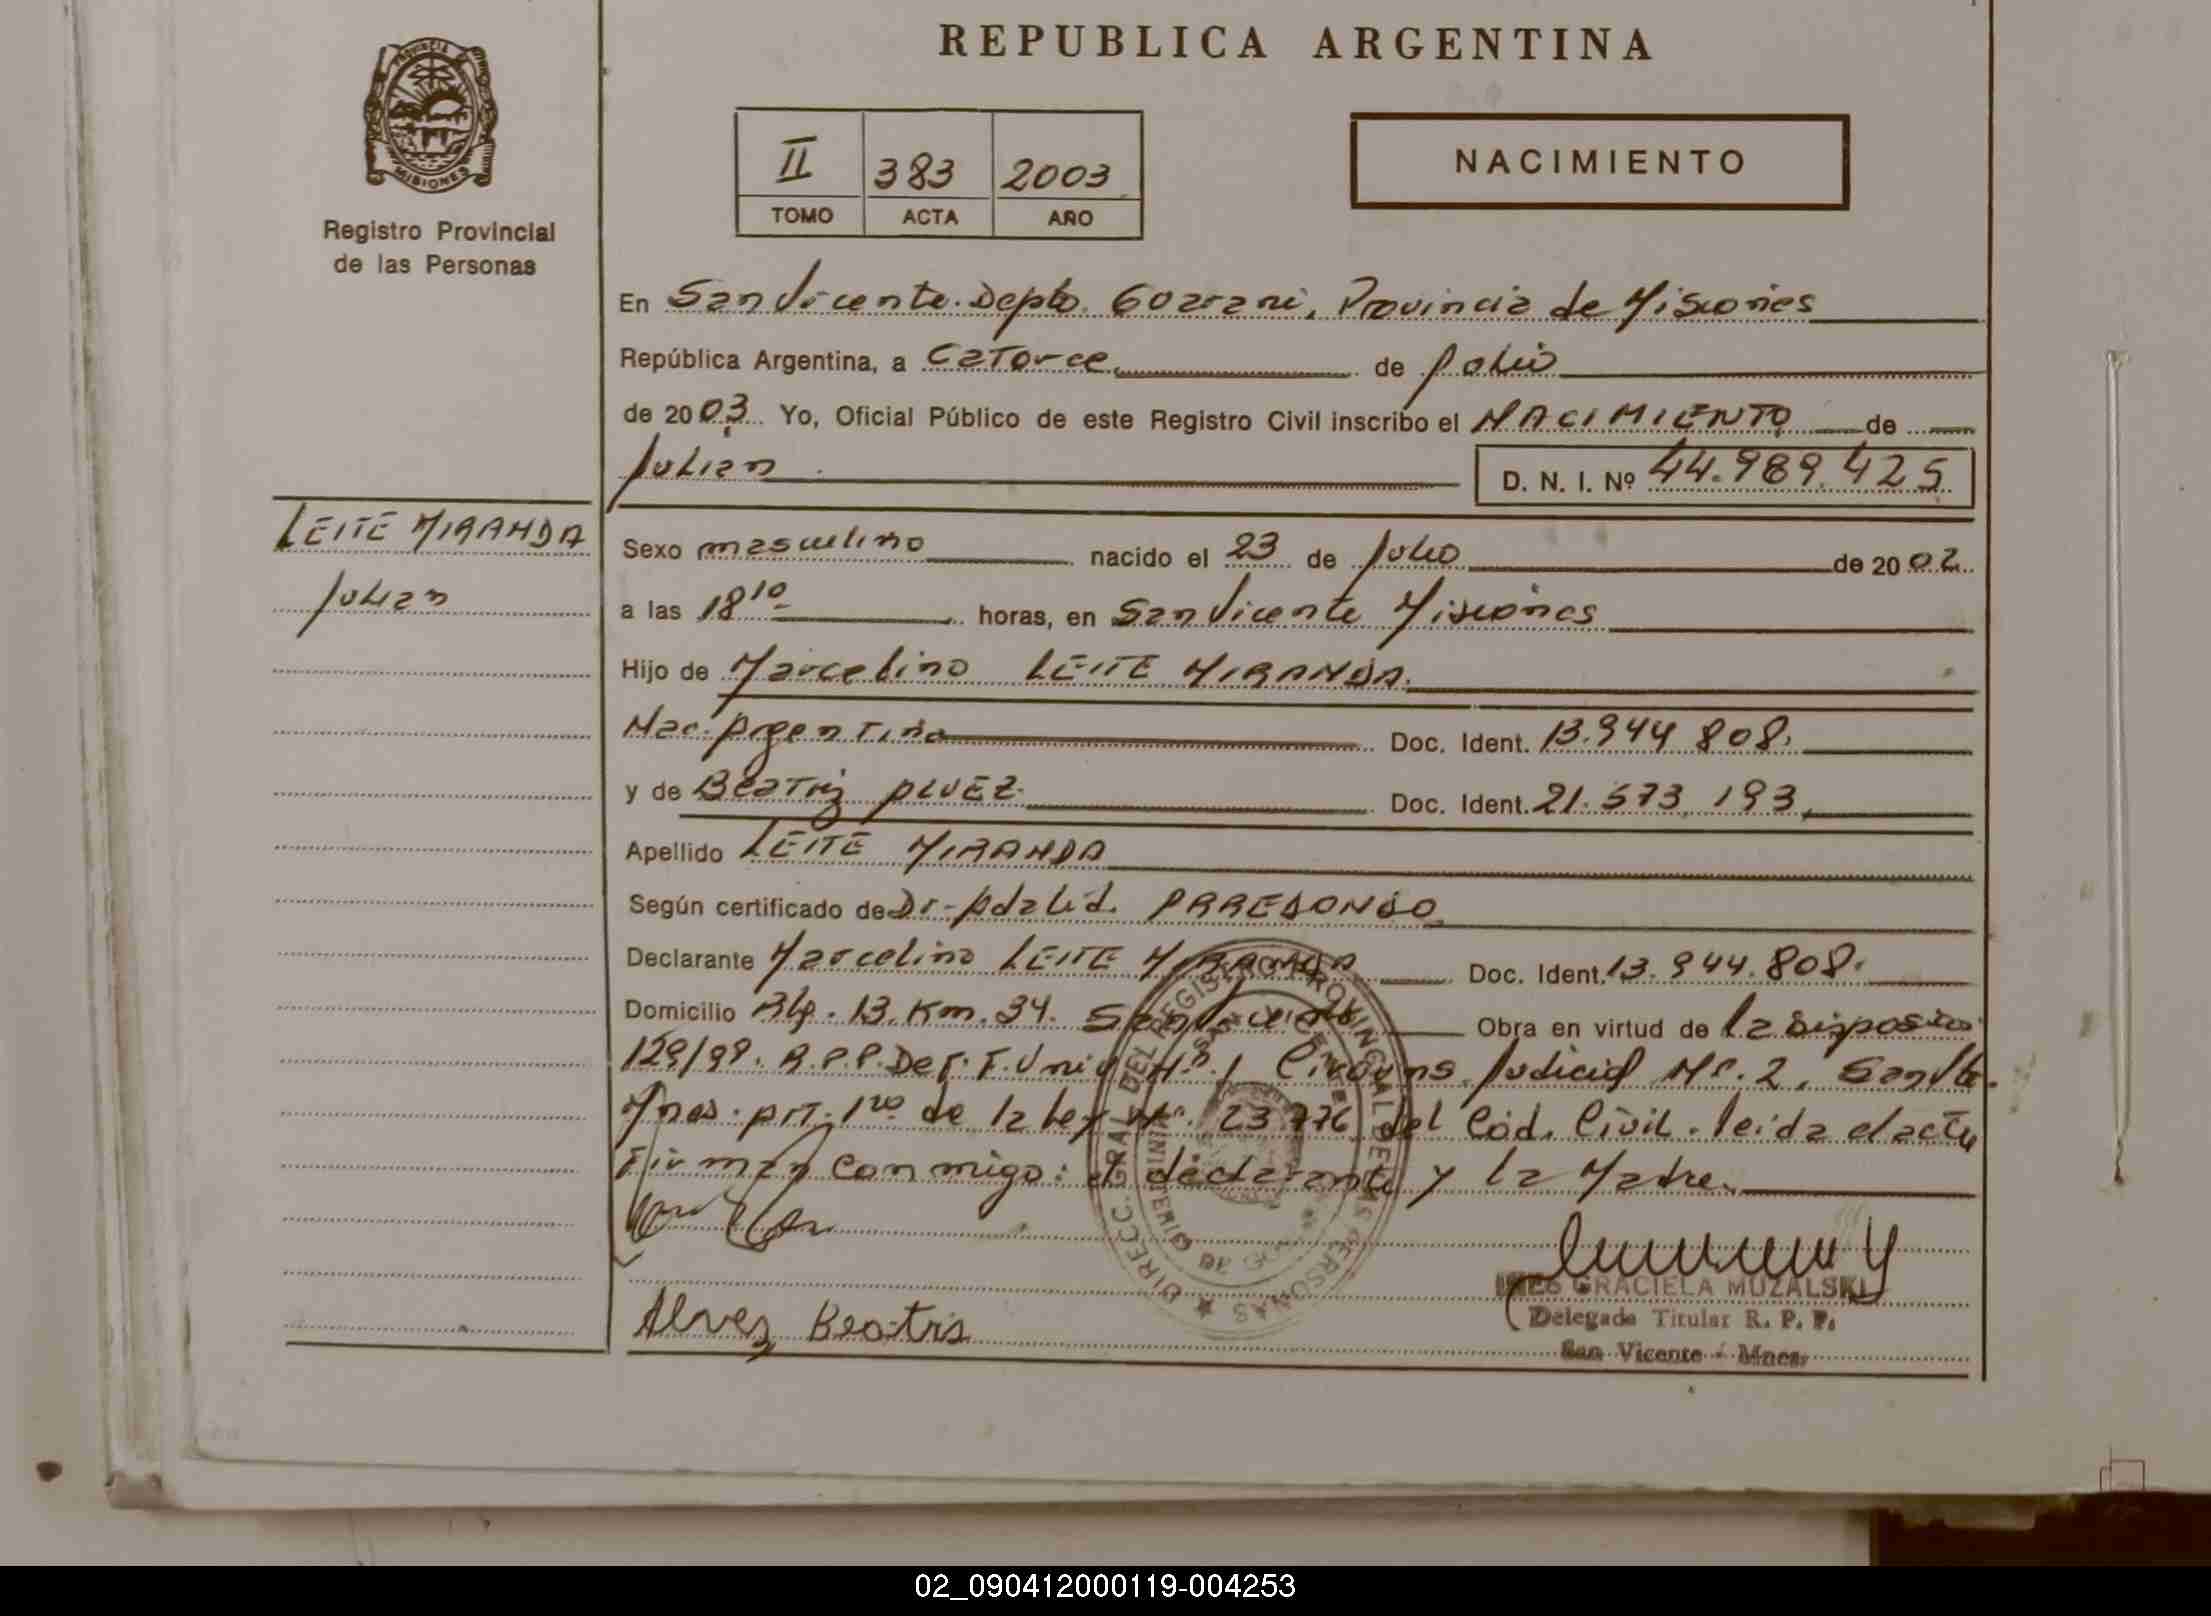 REPUBLICA ARGENTINA
PROVINCIA
MISIONES
Registro Provincial
de las Personas
II 383 2003
TOMO ACTA AÑO
NACIMIENTO
En San Vicente. Depto. Guarani, Provincia de Misiones
República Argentina, a Catorce de Julio
de 2003 Yo, Oficial Público de este Registro Civil inscribo el NACIMIENTO de
Julian D. N. I. Nº 44.989.425
LEITE MIRANDA
Julian
Sexo masculino nacido el 23 de Julio de 2002
a las 18 10 horas, en San Vicente Misiones
Hijo de Marcelino LEITE MIRANDA
Nac. Argentina Doc. Ident. 13.944.808.
y de Beatriz ALVEZ Doc. Ident. 21.573.193
Apellido LEITE MIRANDA
Según certificado de Dr. Adalid. ARREDONDO
Declarante Marcelino LEITE MIRANDA Doc. Ident. 13.944.808.
Domicilio Km. 34. San Vicente Obra en virtud de la
129/99. R.P.P. Judicial Nº. 2, San Vte.
Mnes. Art. 1ro de la Ley Nº. 23.776 del Cód. Civil. leida el acta
Firman conmigo: el declarante y la Madre.
DIRECC. GRAL. DEL REGISTRO PROVINCIAL DE LAS PERSONAS
MINISTERIO DE
SAN VICENTE
Alvez Beatris
INES GRACIELA MUZALSKI
Delegada Titular R. P. P.
San Vicente - Mnes.
02_090412000119-004253